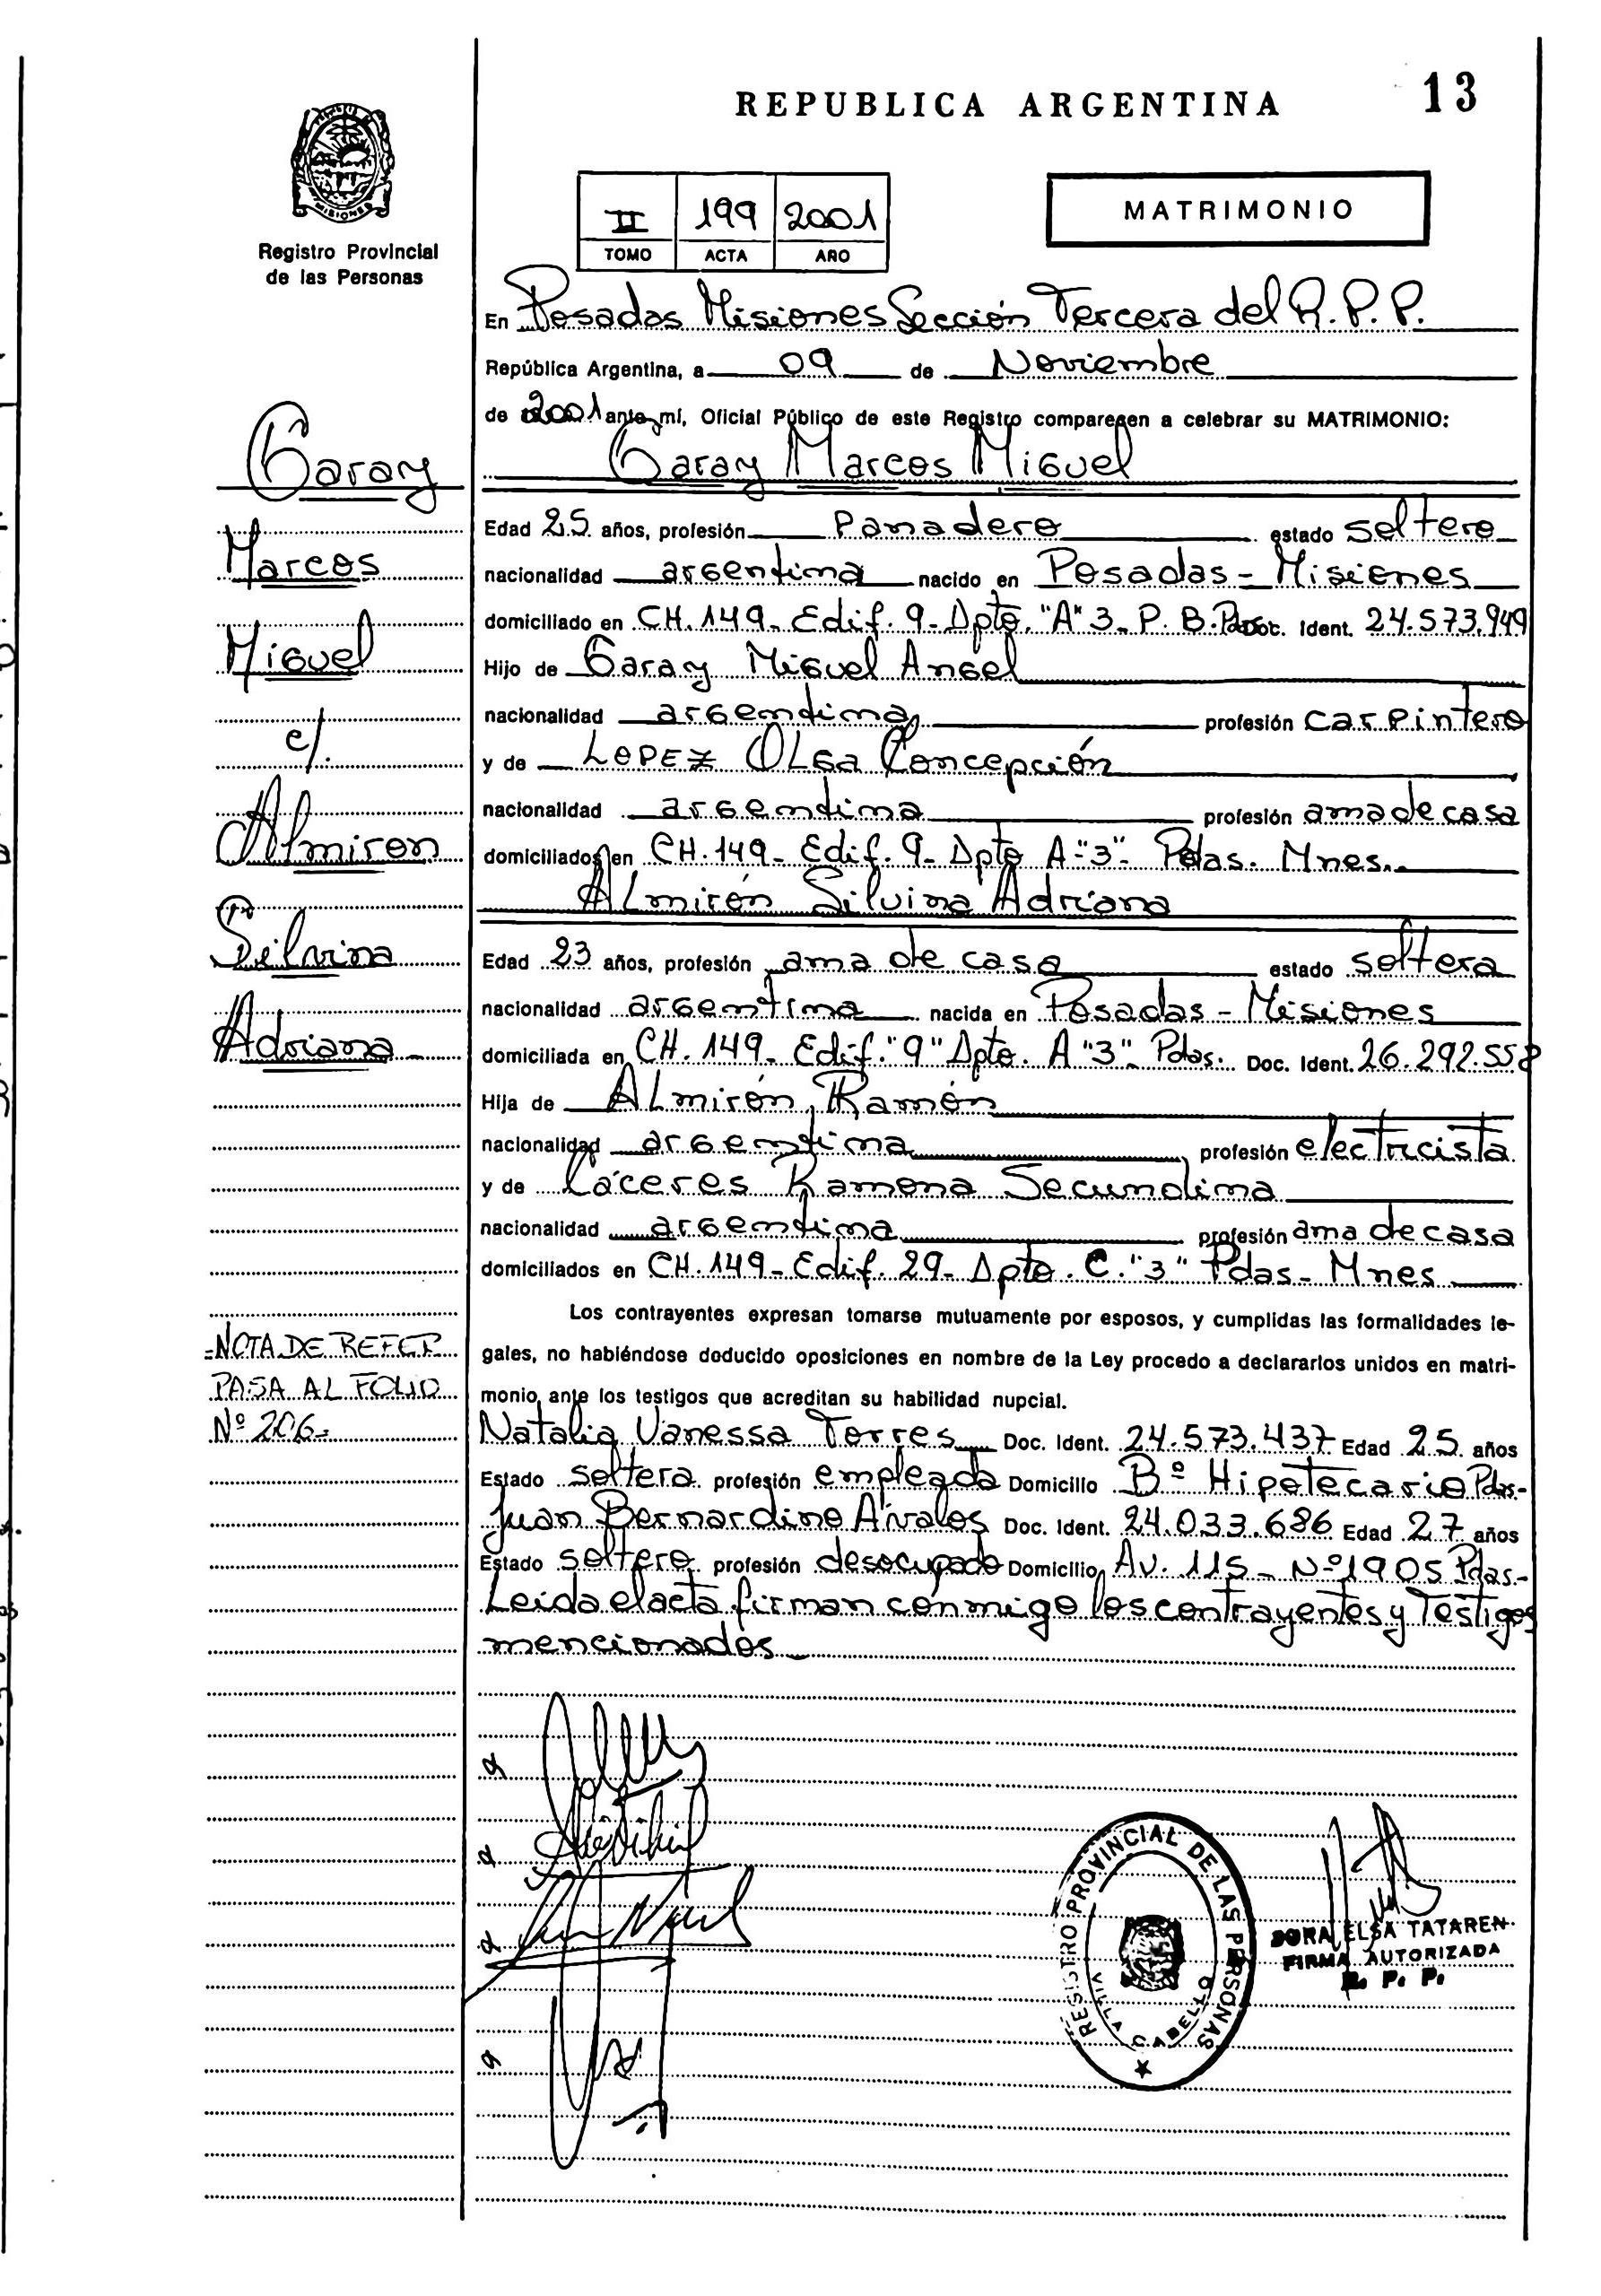 REPUBLICA ARGENTINA
13
MISIONES
Registro Provincial
de las Personas
II 199 2001
TOMO ACTA AÑO
MATRIMONIO
En Posadas Misiones Sección Tercera del R.P.P.
República Argentina, a 09 de Noviembre
de 2001 ante mí, Oficial Público de este Registro comparecen a celebrar su MATRIMONIO:
Garay Marcos Miguel
Edad 25 años, profesión Panadero estado soltero
nacionalidad argentina nacido en Posadas - Misiones
domiciliado en CH. 149- Edif. 9- Dpto. "A" 3- P. B. Doc. Ident. 24.573.949
Hijo de Garay Miguel Angel
nacionalidad argentina profesión carpintero
y de LOPEZ OLga Concepción
nacionalidad argentina profesión ama de casa
domiciliados en CH. 149- Edif. 9- Dpto A-"3"- Pdas. Mnes.
ALmirón Silvina Adriana
Edad 23 años, profesión ama de casa estado soltera
nacionalidad argentina nacida en Posadas - Misiones
domiciliada en CH. 149- Edif. "9" Dpto. A "3"- Pdas. Doc. Ident. 26.292.558
Hija de ALmirón, Ramón
nacionalidad argentina profesión electricista
y de Cáceres Ramona Secundina
nacionalidad argentina profesión ama de casa
domiciliados en CH. 149- Edif. 29- Dpto. C. "3" Pdas- Mnes
Los contrayentes expresan tomarse mutuamente por esposos, y cumplidas las formalidades le-
gales, no habiéndose deducido oposiciones en nombre de la Ley procedo a declararlos unidos en matri-
monio ante los testigos que acreditan su habilidad nupcial.
Natalia Vanessa Torres Doc. Ident. 24.573.437 Edad 25 años
Estado soltera profesión empleada Domicilio Bº Hipotecario Pdas-
Juan Bernardino Avalos Doc. Ident. 24.033.686 Edad 27 años
Estado soltero profesión desocupado Domicilio Av. 115- Nº 1905 Pdas.-
Leida el acta firman conmigo los contrayentes y Testigos
mencionados
Garay
Marcos
Miguel
c/.
Almiron
Silvina
Adriana
-NOTA DE REFER
PASA AL FOLIO
Nº 206-
REGISTRO PROVINCIAL DE LAS PERSONAS
VILLA CABELLO
DORA ELSA TATAREN
FIRMA AUTORIZADA
R. P. P.